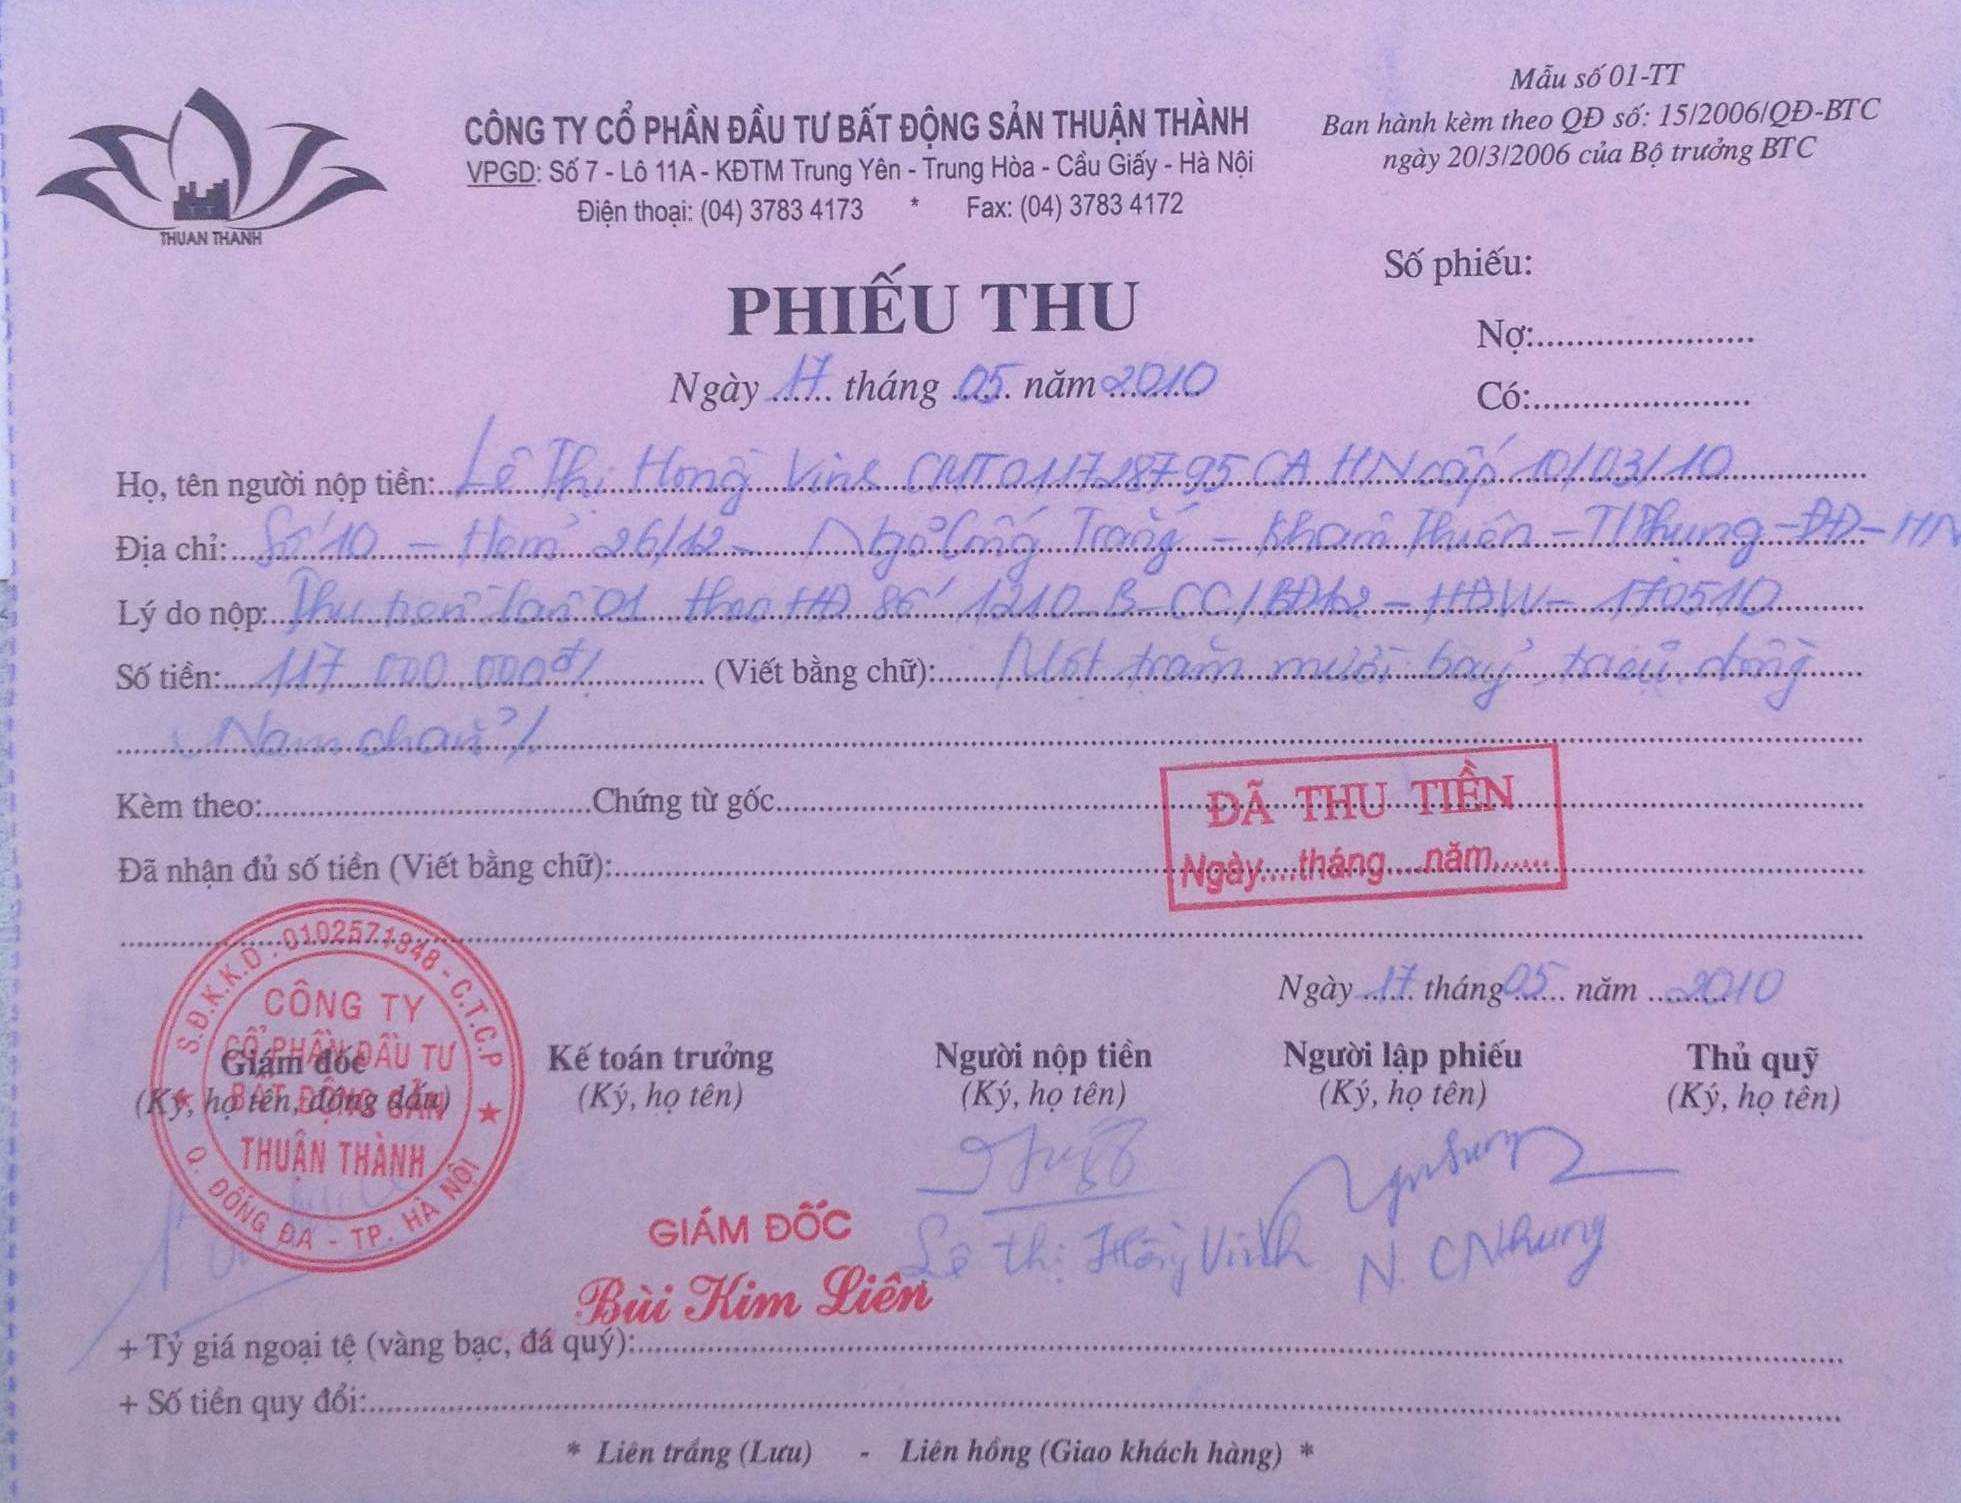 THUAN THANH
CÔNG TY CỔ PHẦN ĐẦU TƯ BẤT ĐỘNG SẢN THUẬN THÀNH
VPGD: Số 7 - Lô 11A - KĐTM Trung Yên - Trung Hòa - Cầu Giấy - Hà Nội
Điện thoại: (04) 3783 4173 * Fax: (04) 3783 4172
Mẫu số 01-TT
Ban hành kèm theo QĐ số: 15/2006/QĐ-BTC
ngày 20/3/2006 của Bộ trưởng BTC
PHIẾU THU
Ngày 17 tháng 05 năm 2010
Số phiếu:
Nợ:
Có:
Họ, tên người nộp tiền: Lê Thị Hồng Vinh CMT 011728795 CA HN cấp 10/03/10
Địa chỉ: Số 10 - Hẻm 26/12 - Ngõ Cống Trắng - Khâm Thiên - T/Phụng - ĐĐ - HN
Lý do nộp: Thu tiền lần 01 theo HĐ số 1210 B-CC/ - 170510
Số tiền: 117.000.000đ/ (Viết bằng chữ): Một trăm mười bảy triệu đồng
Nam chẵn /
Kèm theo: Chứng từ gốc
Đã nhận đủ số tiền (Viết bằng chữ):
ĐÃ THU TIỀN
Ngày....tháng....năm......
Ngày 17 tháng 05 năm 2010
Giám đốc
(Ký, họ tên, đóng dấu)
Kế toán trưởng
(Ký, họ tên)
Người nộp tiền
(Ký, họ tên)
Người lập phiếu
(Ký, họ tên)
Thủ quỹ
(Ký, họ tên)
S.Đ.K.K.D: 0102571848 - C.T.C.P
CÔNG TY
CỔ PHẦN ĐẦU TƯ
BẤT ĐỘNG SẢN
THUẬN THÀNH
Q. ĐỐNG ĐA - TP. HÀ NỘI
GIÁM ĐỐC
Bùi Kim Liên
Lê Thị Hồng Vinh
N. C Nhung
+ Tỷ giá ngoại tệ (vàng bạc, đá quý):
+ Số tiền quy đổi:
* Liên trắng (Lưu) - Liên hồng (Giao khách hàng) *